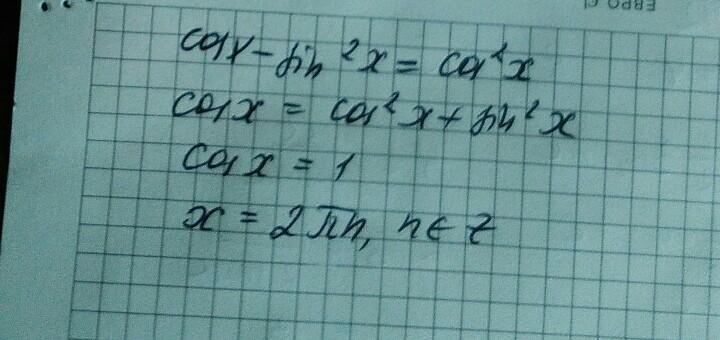 cos x - sin²x = cos²x
cos x = cos²x + sin²x
cos x = 1
x = 2πn, n ∈ z